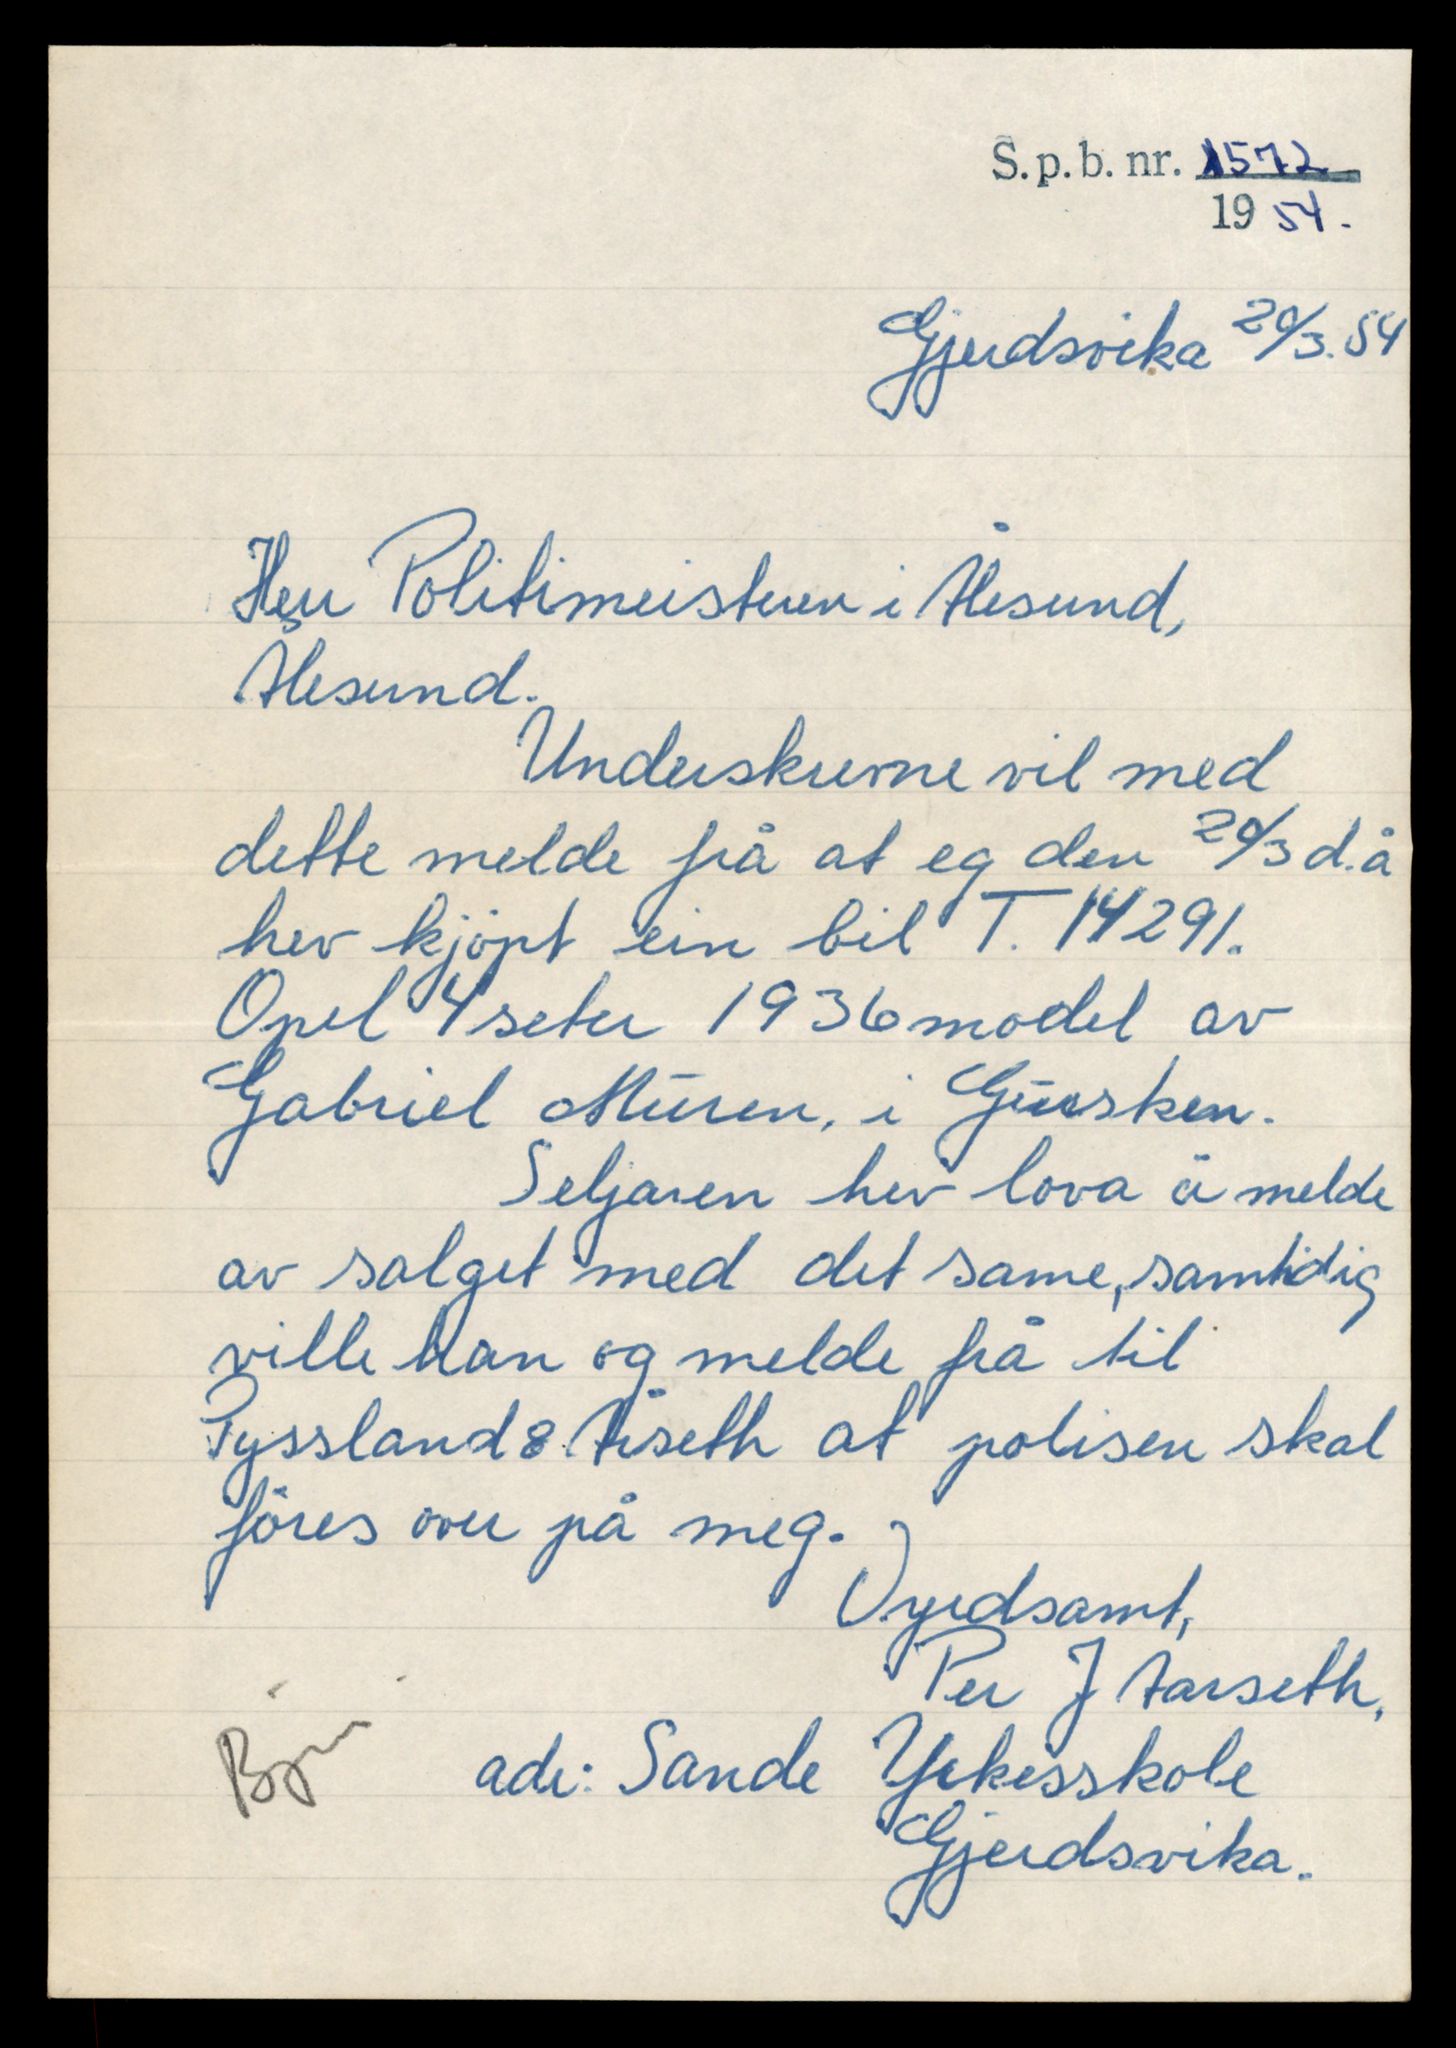 S.p.b. nr. 1572
19 54.
Gjerdsvika 20/3.54
Herr Politimeisteren i Ålesund,
Ålesund.
Underskrevne vil med
dette melde frå at eg den 20/3 d.å
hev kjöpt ein bil T. 14291.
Opel 4 seter 1936 model av
Gabriel Müren, i Gursken.
Seljaren hev lova å melde
av salget med det same, samtidig
ville han og melde frå til
& Åseth at polisen skal
föres over på meg.
Vyrdsamt,
Per J Aarseth,
adr: Sande Yrkesskole
Gjerdsvika.